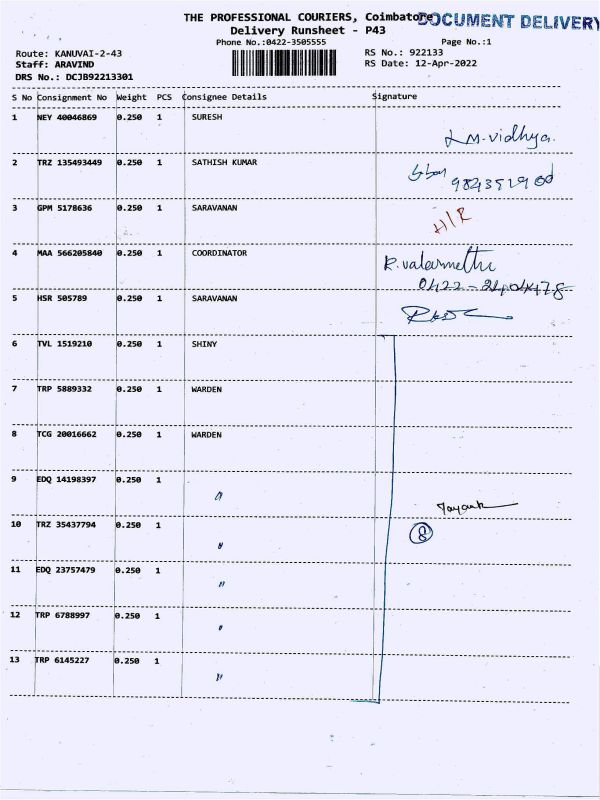 THE PROFESSIONAL COURIERS, Coimbatore
DOCUMENT DELIVERY
Delivery Runsheet - P43
Phone No.:0422-3505555
Page No.:1
Route: KANUVAI-2-43
RS No.: 922133
Staff: ARAVIND
RS Date: 12-Apr-2022
DRS No.: DCJB92213301
S No Consignment No Weight PCS Consignee Details Signature
1 NEY 40046869 0.250 1 SURESH
M. vidhya.
2 TRZ 135493449 0.250 1 SATHISH KUMAR
3 GPM 5178636 0.250 1 SARAVANAN
H/R
4 MAA 566205840 0.250 1 COORDINATOR
R. valarmethi
5 HSR 505789 0.250 1 SARAVANAN
6 TVL 1519210 0.250 1 SHINY
7 TRP 5889332 0.250 1 WARDEN
8 TCG 20016662 0.250 1 WARDEN
9 EDQ 14198397 0.250 1 "
10 TRZ 35437794 0.250 1 "
8
11 EDQ 23757479 0.250 1 "
12 TRP 6788997 0.250 1 "
13 TRP 6145227 0.250 1 "